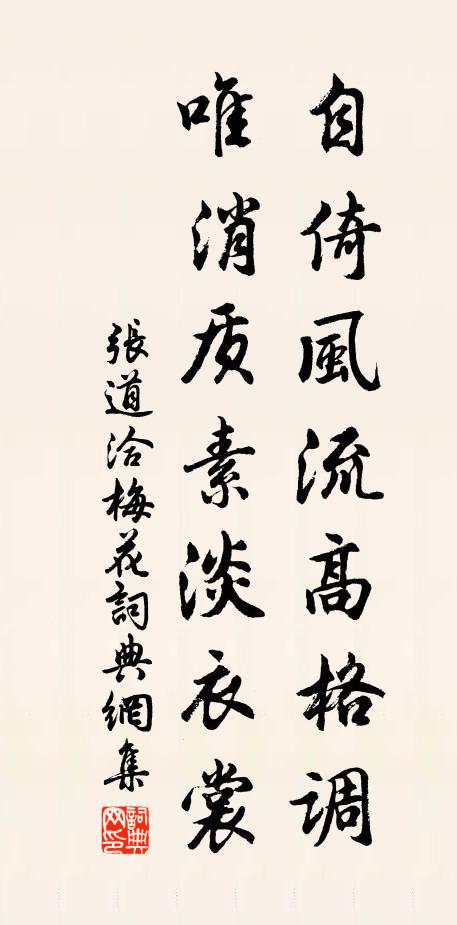 自倚風流高格调
唯消质素淡衣裳
張道洽梅花詞典網集
詞典網印